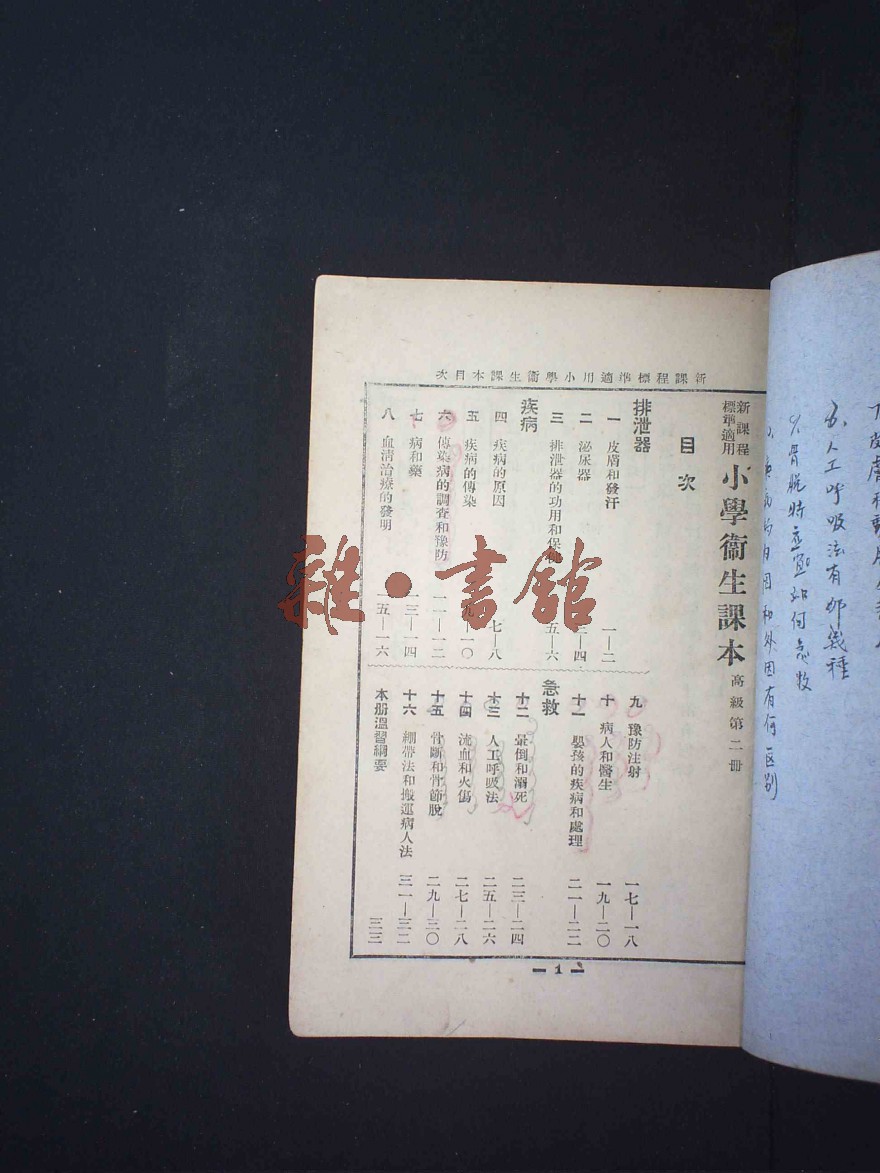 新課程標準適用小學衞生課本目次
新課程
標準適用
小學衞生課本 高級第二冊
目次
排泄器
一 皮膚和發汗 一—二
二 泌尿器 三—四
三 排泄器的功用和保 五—六
疾病
四 疾病的原因 七—八
五 疾病的傳染 九—一〇
六 傳染病的調查和豫防 一一—一二
七 病和藥 一三—一四
八 血清治療的發明 一五—一六
九 豫防注射 一七—一八
十 病人和醫生 一九—二〇
十一 嬰孩的疾病和處理 二一—二二
急救
十二 暈倒和溺死 二三—二四
十三 人工呼吸法 二五—二六
十四 流血和火傷 二七—二八
十五 骨斷和骨節脫 二九—三〇
十六 綳帶法和搬運病人法 三一—三二
本册溫習綱要 三三
1
人工呼吸法有那幾種
骨脫時應如何急救
病的內因和外因有何区别
雜·書館